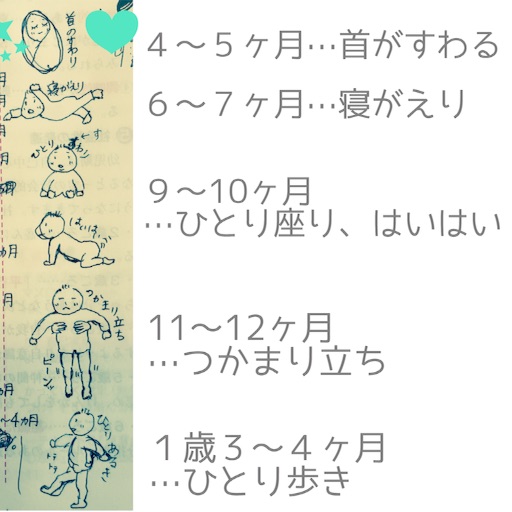 首のすわり
４〜５ヶ月…首がすわる
寝がえり
６〜７ヶ月…寝がえり
ひとりすわり
９〜10ヶ月
…ひとり座り、はいはい
はいはい
つかまり立ち
ピーンッ
11〜12ヶ月
…つかまり立ち
〜4ヵ月
ひとりあるき
トテ
トテ
１歳３〜４ヶ月
…ひとり歩き